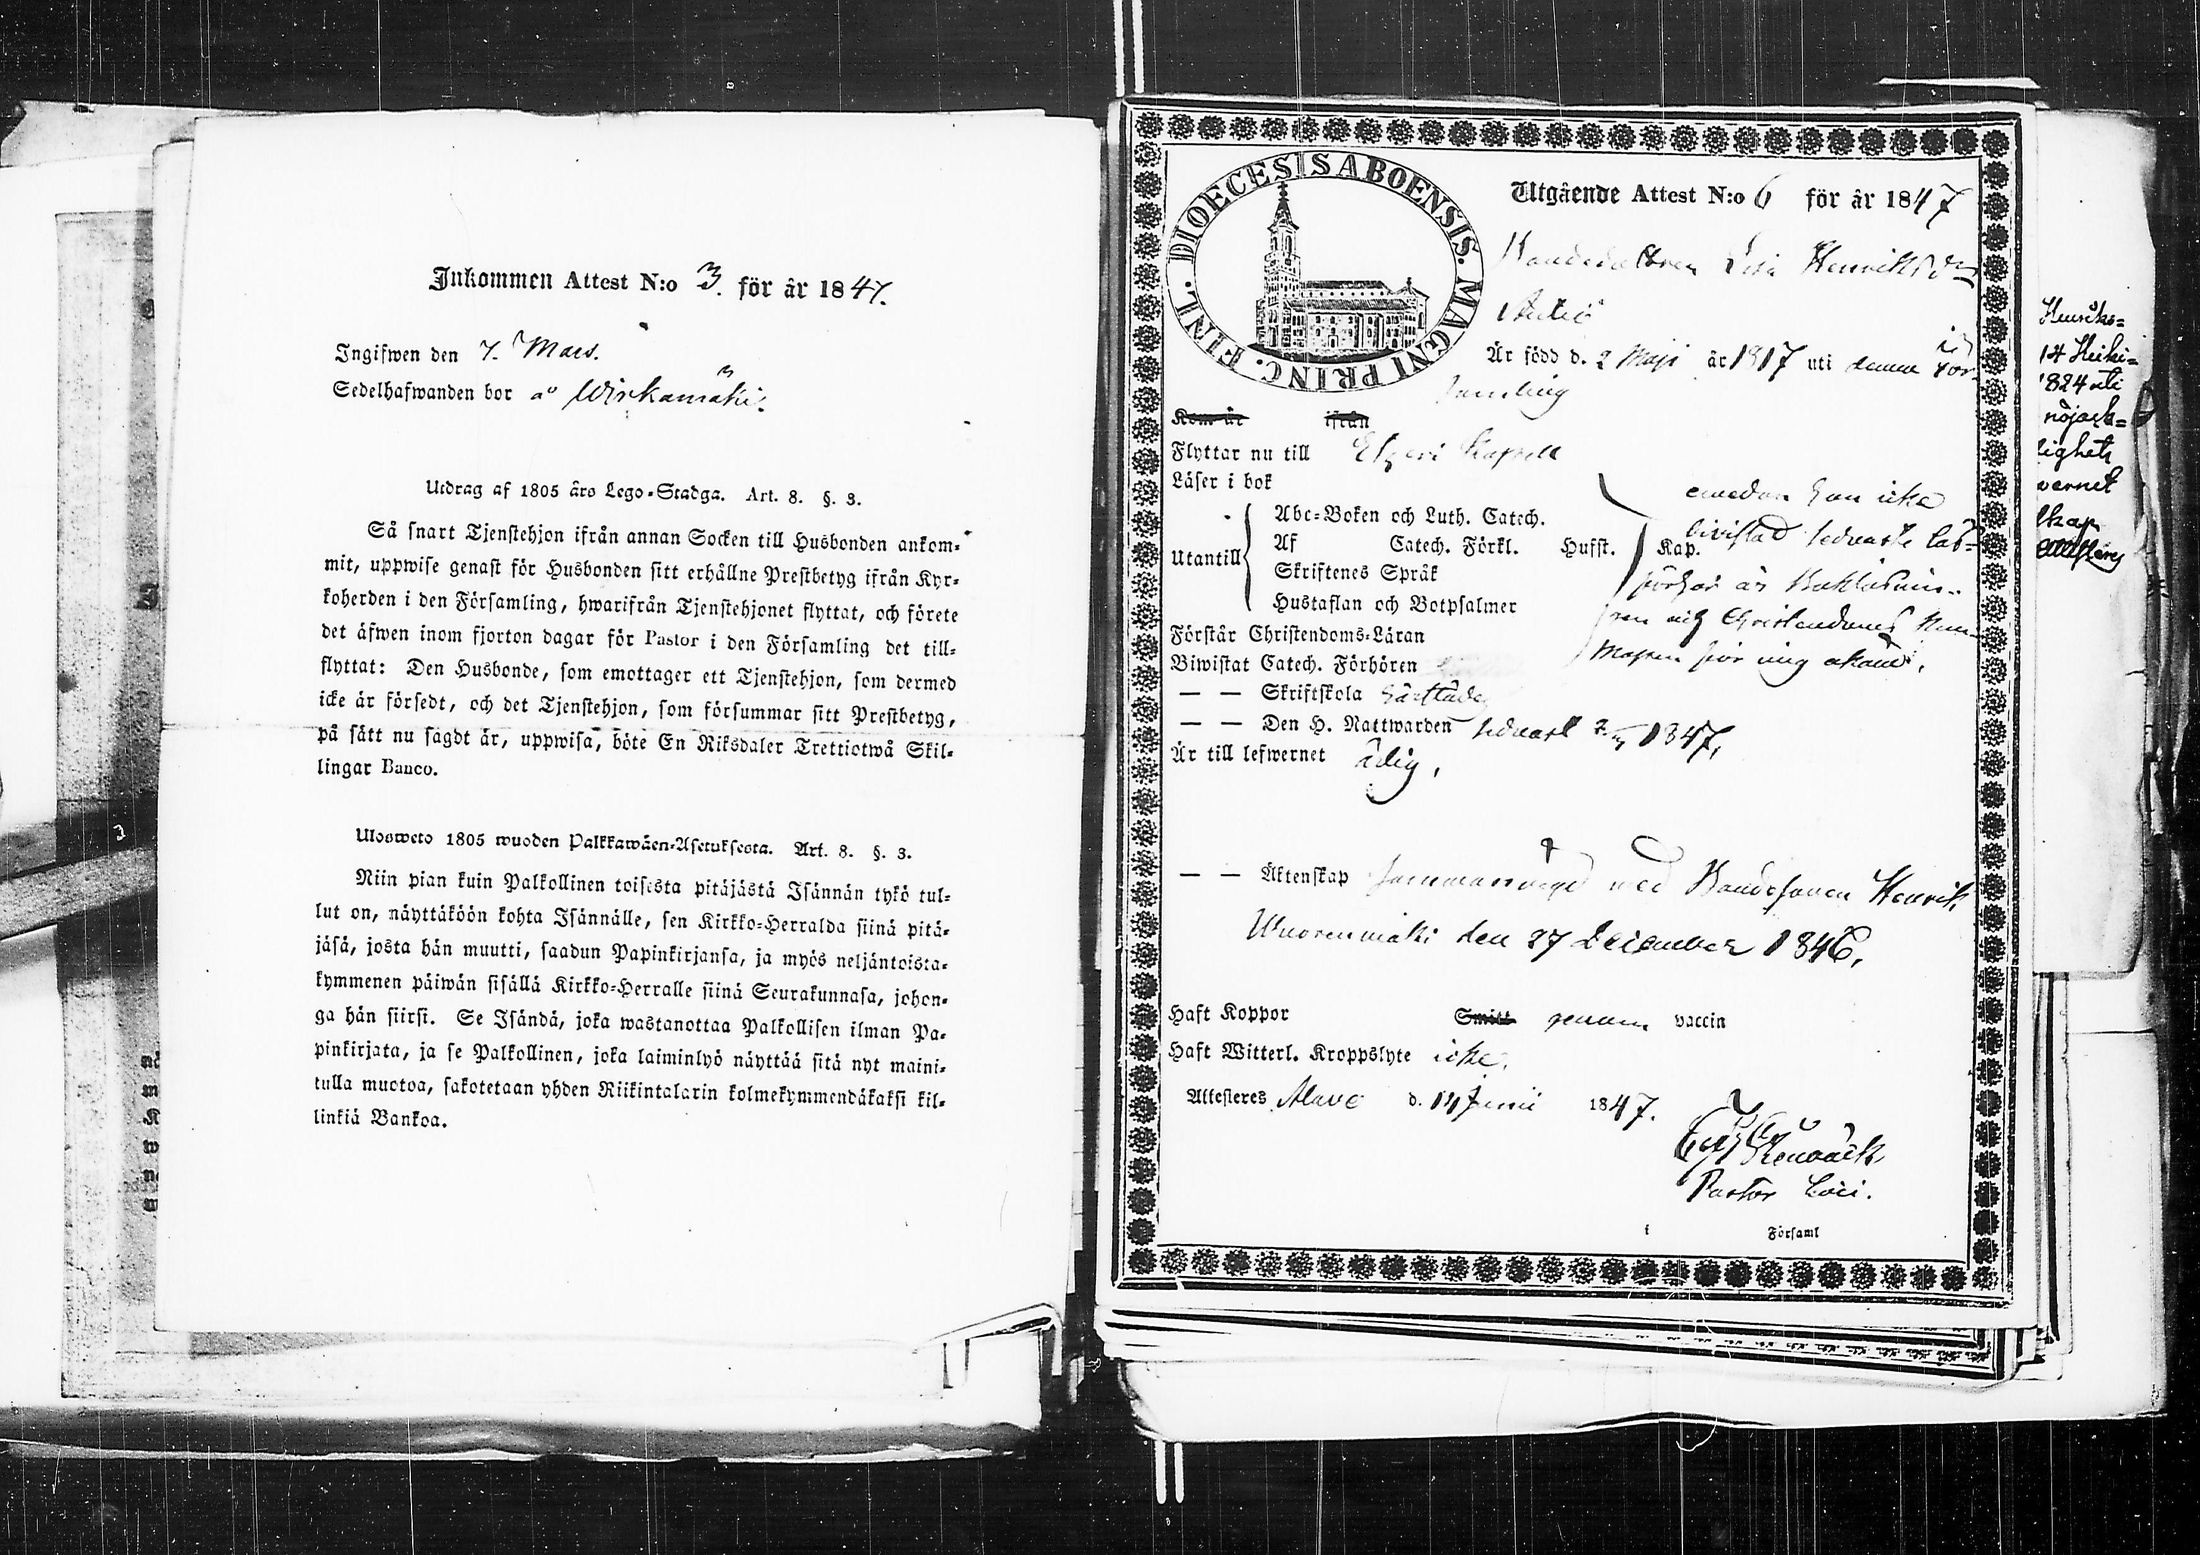 Inkommen Attest N:o 3. för år 1847.
Ingifwen den 7. Mars.
Sedelhafwanden bor å Wirkamäki.
Utdrag af 1805 års Lego-Stadga. Art. 8. §. 3.
Så snart Tjenstehjon ifrån annan Socken till Husbonden ankom-
mit, uppwise genast för Husbonden sitt erhållne Prestbetyg ifrån Kyr-
koherden i den Församling, hwarifrån Tjenstehjonet flyttat, och förete
det äfwen inom fjorton dagar för Pastor i den Församling det till-
flyttat: Den Husbonde, som emottager ett Tjenstehjon, som dermed
icke är försedt, och det Tjenstehjon, som försummar sitt Prestbetyg,
på sätt nu sagdt är, uppwisa, böte En Riksdaler Trettiotwå Skil-
lingar Banco.
Ulosweto 1805 wuoden Palkkawäen-Asetuksesta. Art. 8. §. 3.
Niin pian kuin Palkollinen toisesta pitäjästä Isännän tykö tul-
lut on, näyttäköön kohta Isännälle, sen Kirkko-Herralda siinä pitä-
jäsä, josta hän muutti, saadun Papinkirjansa, ja myös neljäntoista-
kymmenen päiwän sisällä Kirkko-Herralle siinä Seurakunnasa, johon-
ga hän siirsi. Se Isändä, joka wastanottaa Palkollisen ilman Pa-
pinkirjata, ja se Palkollinen, joka laiminlyö näyttää sitä nyt maini-
tulla muotoa, sakotetaan yhden Riikintalarin kolmekymmendäkaksi kil-
linkiä Bankoa.
DIOECESIS ABOENSIS. MAGNI PRINC. FINL.
Utgående Attest N:o 6 för år 1847
Bondedottren Lisa Henriksdr
Är född d. 2 Maji år 1817 uti denna För-
samling
Kom år ifrån
Flyttar nu till Etseri Kapell
Läser i bok
Abc-Boken och Luth. Catech.
Utantill Af Catech. Förkl. Husst. Kap.
Skriftenes Språk
Hustaflan och Botpsalmer
emedan hon icke
bivistad sednaste läs-
förhör är
Christendoms
för mig okänd.
Förstår Christendoms-Läran
Biwistat Catech. Förhören
— — Skriftskola
— — Den H. Nattwarden sednast 1847,
Är till lefwernet
— — Äktenskap sammanvigd med Bondesonen Henrik
Wuorenmäki den 27 December 1846,
Haft Koppor Smitt genom vaccin
Haft Witterl. Kroppslyte icke.
Attesteres Alavo d. 14 Junii 1847.
Pastor Loci.
i Församl
Henriks-
14 Heiki-
1824 uti
nöjack-
lighets
vernet